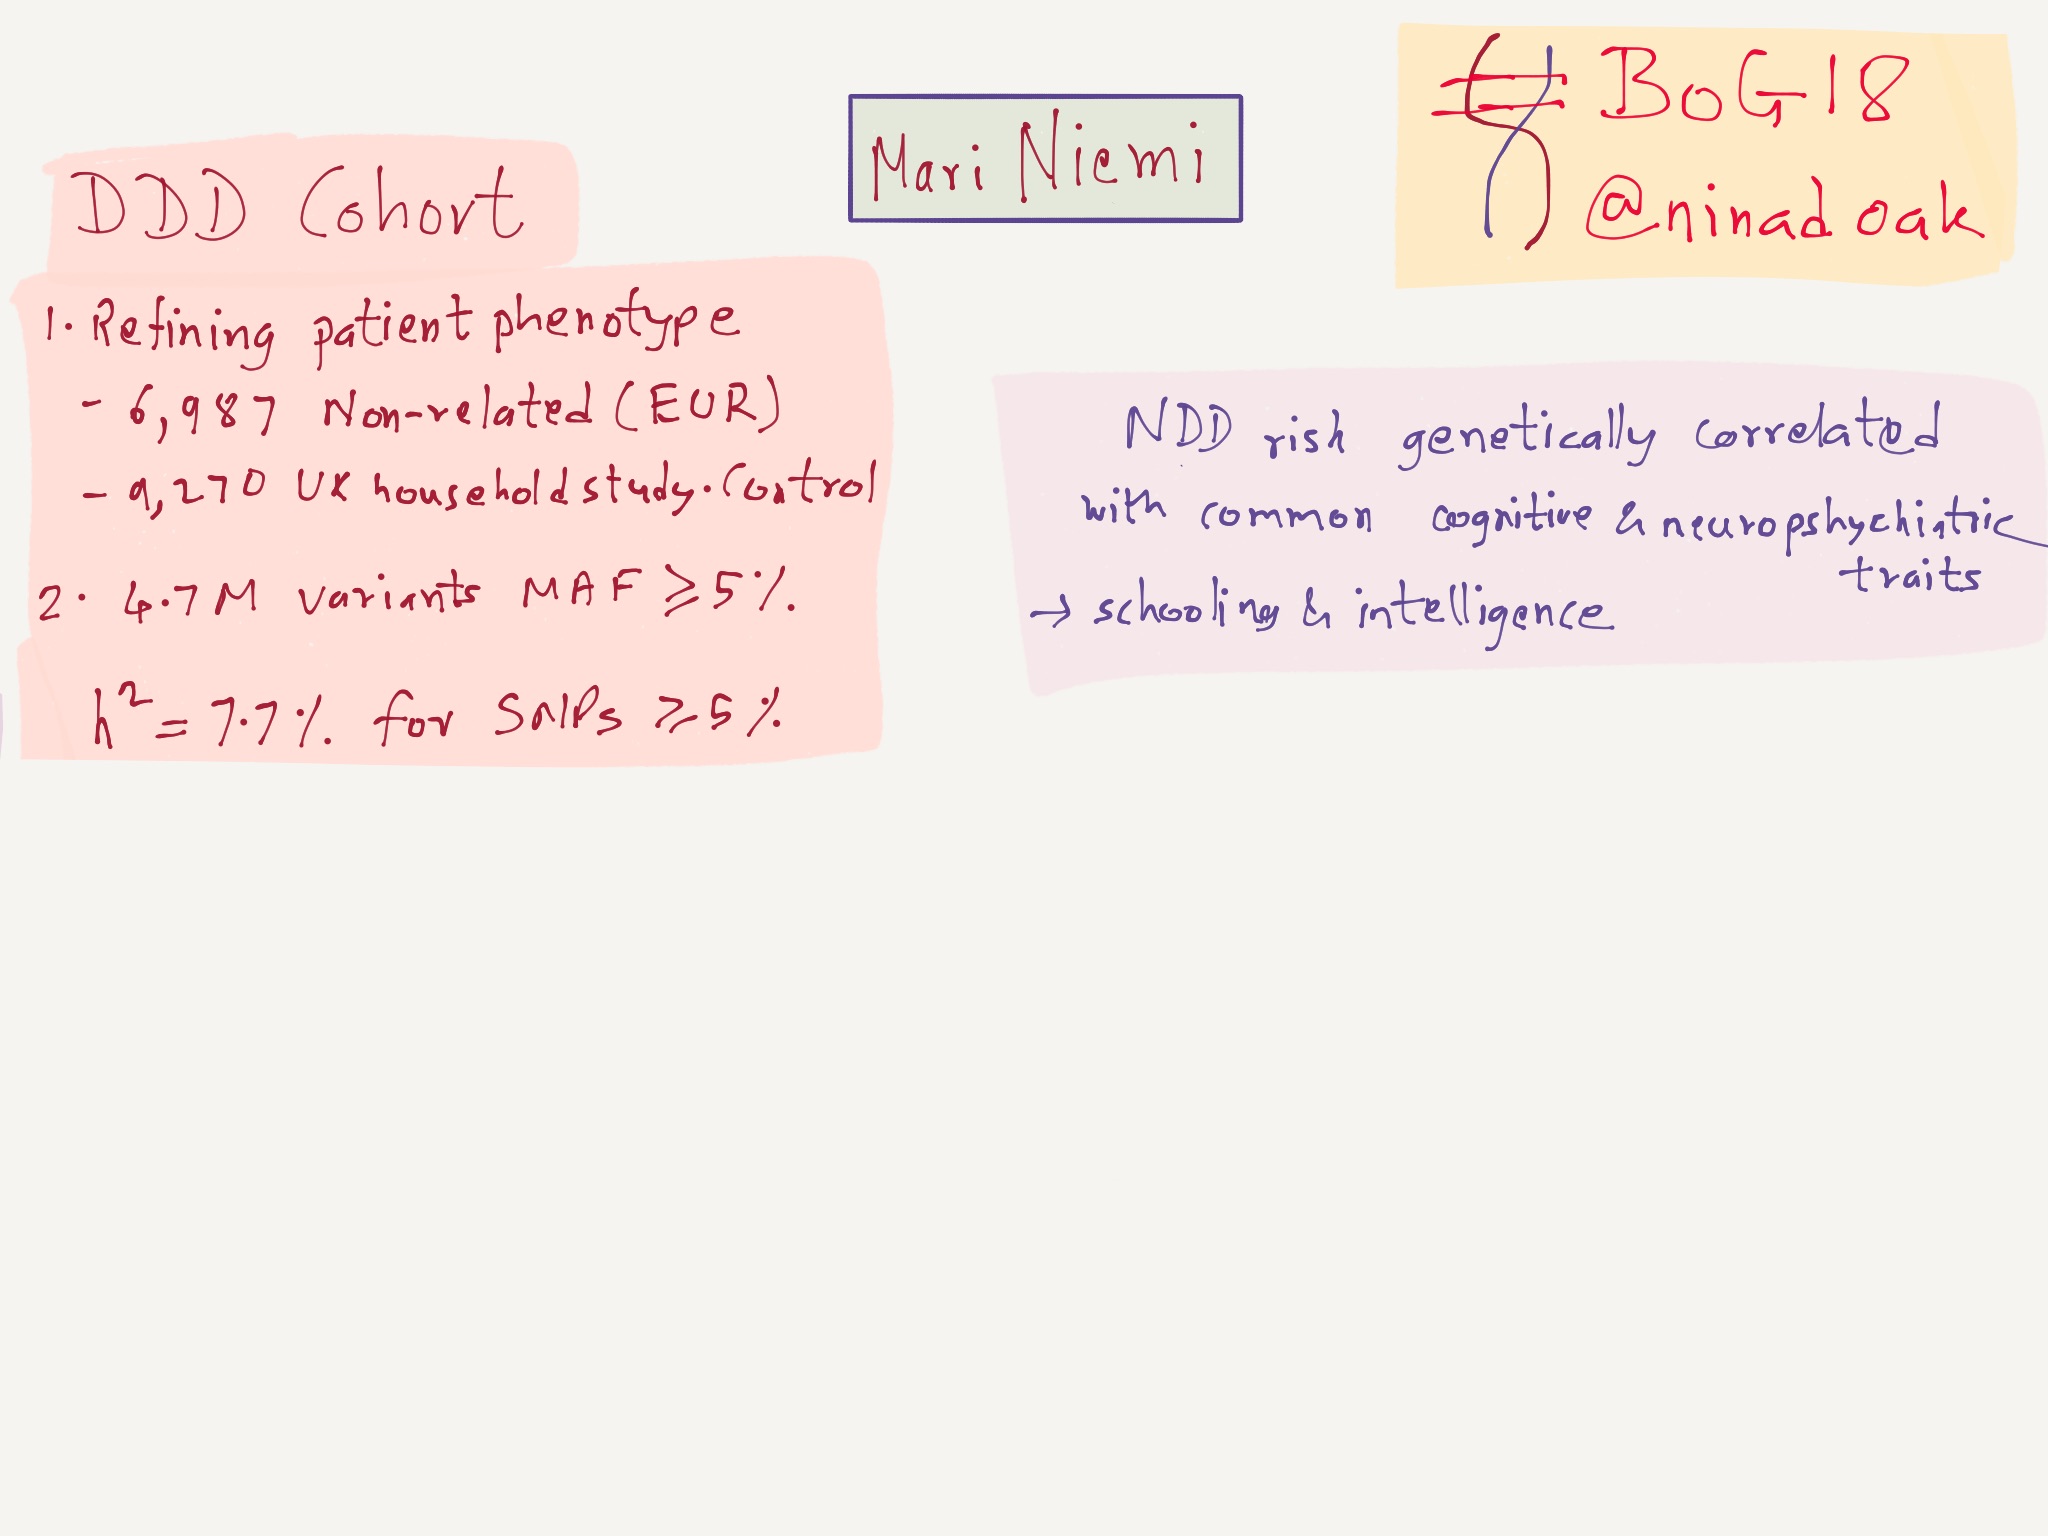 #BoG18
@ninadoak
Mari Niemi
DDD Cohort
1. Refining patient phenotype
- 6,987 Non-related (EUR)
- 9,270 UK household study. Control
2. 4.7M variants MAF ≥ 5%.
h² = 7.7%. for SNPs ≥ 5%
NDD risk genetically correlated
with common cognitive & neuropshychiatric
traits
→ schooling & intelligence